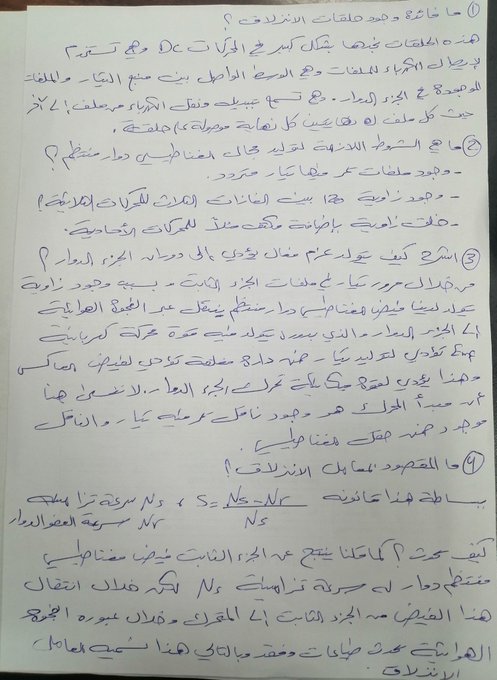 ① ما فائدة وجود حلقات الانزلاق ؟
هذه الحلقات نجدها بشكل كبير في المحركات DC وهي تستخدم
لإيصال الكهرباء للملفات وهي الوسط الواصل بين منبع التيار والملفات
الموجودة في الجزء الدوار. وهي تسمح بتبديل ونقل الكهرباء من ملف إلى آخر
حيث كل ملف له نهايتين كل نهاية موصولة مع حلقة.
② ما هي الشروط اللازمة لتوليد مجال مغناطيسي دوار منتظم ؟
- وجود ملفات يمر فيها تيار متردد.
- وجود زاوية 120 بين الملفات الثلاث للمحركات الثلاثية؟
- خلق زاوية بإضافة مكثف مثلاً للمحركات الأحادية.
③ اشرح كيف يتولد عزم فعال يؤدي إلى دوران الجزء الدوار ؟
من خلال مرور تيار في ملفات الجزء الثابت و بسبب وجود زاوية
يتولد لدينا فيض مغناطيسي دوار منتظم ينتقل عبر الفجوة الهوائية
إلى الجزء الدوار والذي بدوره يتولد فيه قوة محركة كهربائية
تؤدي لتوليد تيار ضمن دارة مغلقة تؤدي لفيض معاكس
وهذا يؤدي لقوة ميكانيكية تحرك الجزء الدوار. لا ننسى هنا
أن مبدأ المحرك هو وجود ناقل يمر فيه تيار و الناقل
موجود ضمن حقل مغناطيسي.
④ ما المقصود بمعامل الانزلاق ؟
ببساطة هذا قانونه S = Ns - Nr / Ns ، Ns سرعة تزامنية
Nr سرعة العضو الدوار
كيف يحدث ؟ كما قلنا ينتج عن الجزء الثابت فيض مغناطيسي
منتظم دوار له سرعة تزامنية Ns لكن خلال انتقال
هذا الفيض من الجزء الثابت إلى المتحرك وخلال عبوره الفجوة
الهوائية يحدث ضياعات وفقد وبالتالي هذا نسميه معامل
الانزلاق.